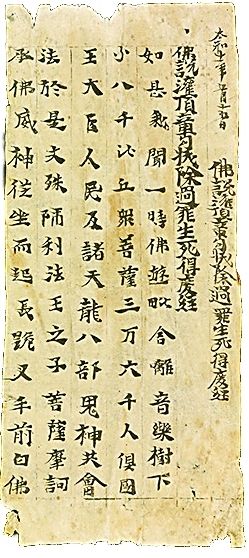 太和十一年五月十五日
佛說灌頂章句拔除過罪生死得度經
佛說灌頂章句拔除過罪生死得度經
如是我聞一時佛遊毗舍離音樂樹下
八千比丘衆菩薩三万六千人俱國
王大臣人民及諸天龍八部鬼神共會
法於是文殊師利法王之子菩薩摩訶
承佛威神從坐而起長跪叉手前白佛